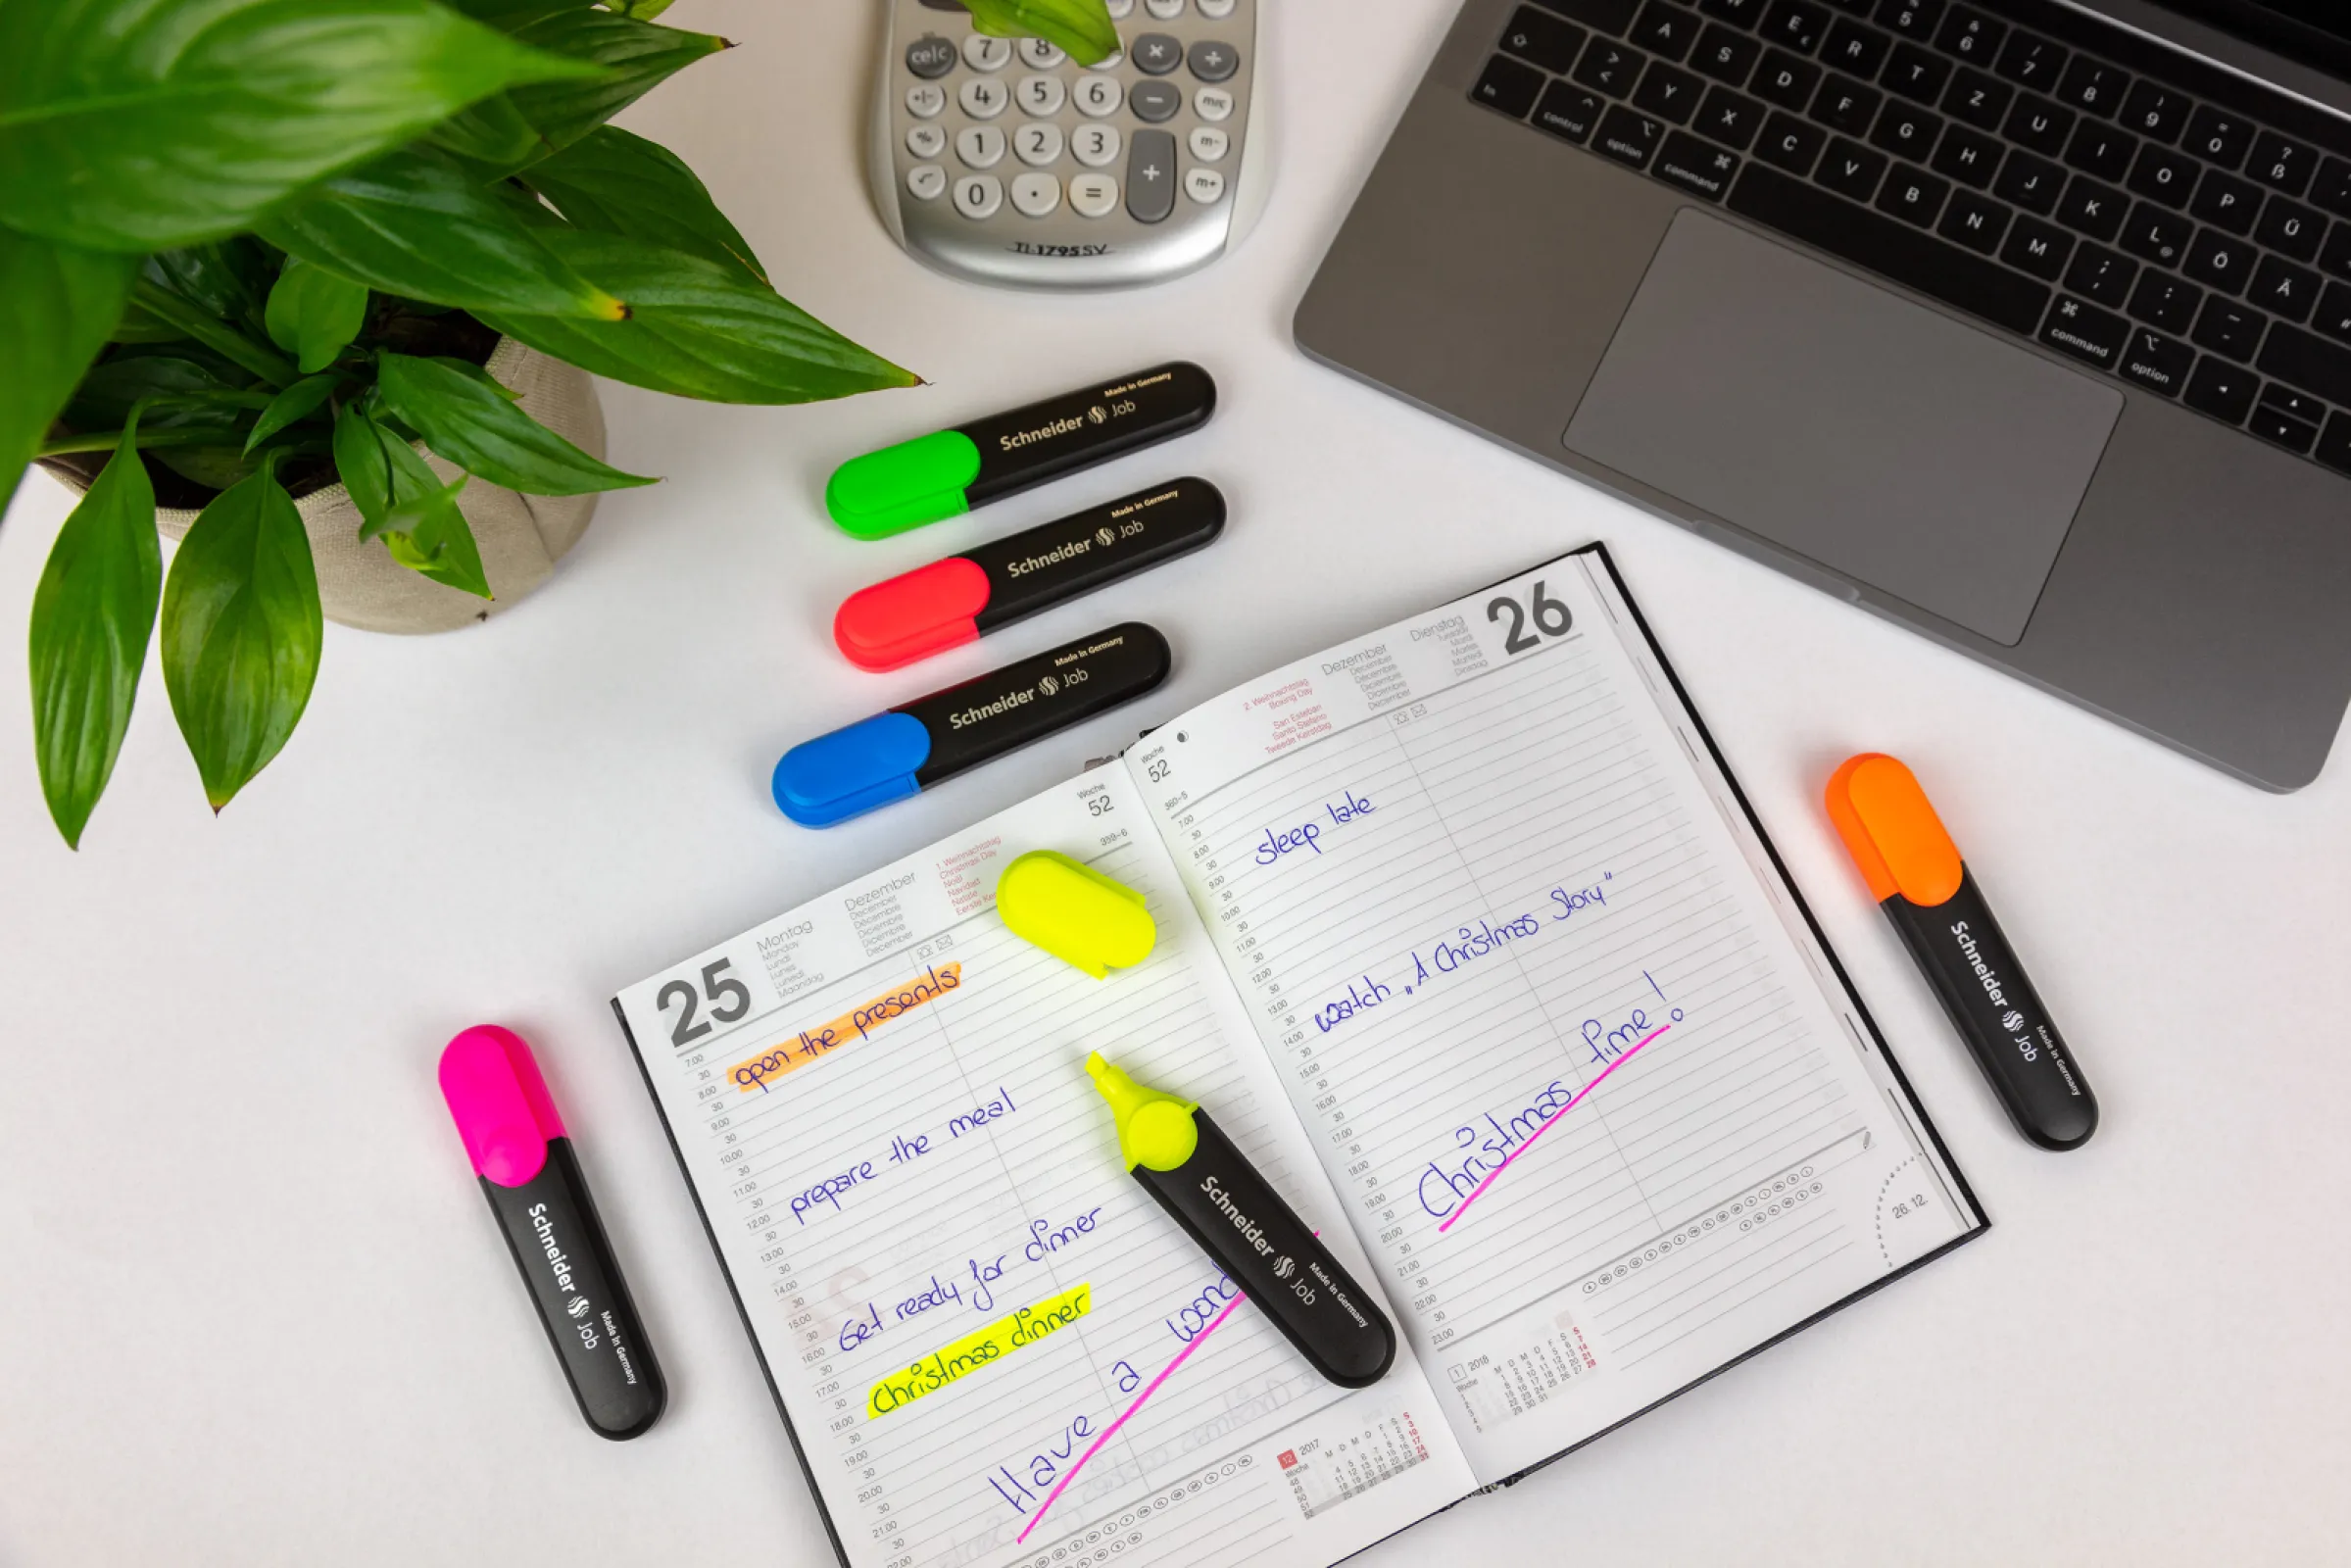 celc 7 8 × ÷
+|− 4 5 6 − mrc
% 1 2 3 + m-
√ 0 . = m+
TI-1795 SV
E R 5 6 7 8 9 0 ß
A S D F T Z U I O P Ü
Y X C V G H J K L Ö Ä
B N M
fn control option command
command option
Made in Germany
Schneider Job
Made in Germany
Schneider Job
Made in Germany
Schneider Job
Schneider Job
Made in Germany
Schneider Job
Made in Germany
Schneider Job
Made in Germany
25
Montag
Monday
Lundi
Lunes
Lunedì
Maandag
Dezember
December
Décembre
Diciembre
Dicembre
December
1. Weihnachtstag
Christmas Day
Noël
Navidad
Natale
Woche
52
359-6
7.00
30
8.00
30
9.00
30
10.00
30
11.00
30
12.00
30
13.00
30
14.00
30
15.00
30
16.00
30
17.00
30
18.00
30
19.00
30
20.00
30
21.00
30
22.00
open the presents
prepare the meal
Get ready for dinner
Christmas dinner
Have a
12 2017
Woche M D M D F S S
Woche
52
360-5
2. Weihnachtstag
Boxing Day
San Esteban
Santo Stefano
Tweede Kerstdag
Dezember
December
Décembre
Diciembre
Dicembre
December
Dienstag
Tuesday
Mardi
Martes
Martedì
Dinsdag
26
7.00
30
8.00
30
9.00
30
10.00
30
11.00
30
12.00
30
13.00
30
14.00
30
15.00
30
16.00
30
17.00
30
18.00
30
19.00
30
20.00
30
21.00
30
22.00
30
23.00
sleep late
watch „A Christmas Story"
Christmas time!
26. 12.
1 2018
Woche M D M D F S S